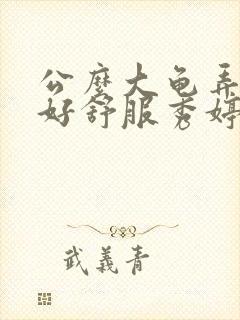 公麽大龟弄
好舒服秀婷
武義青